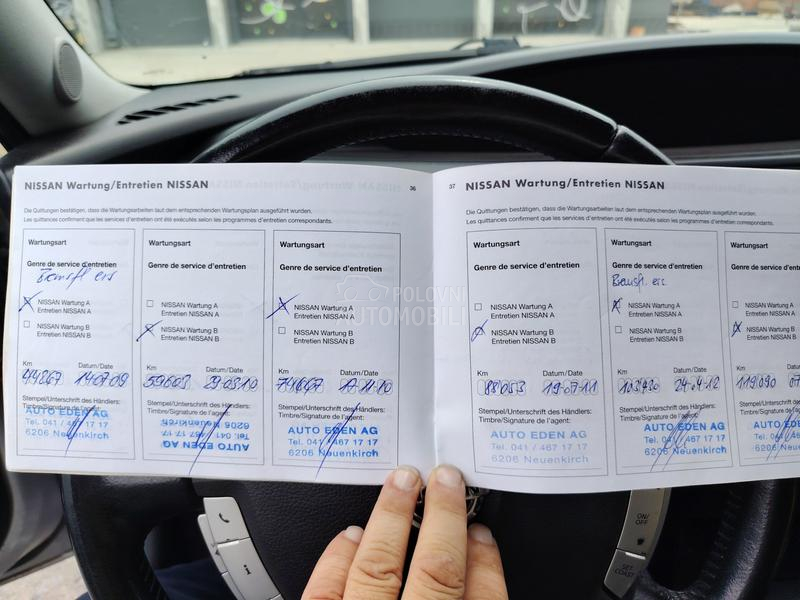 NISSAN Wartung/Entretien NISSAN
36
Die Quittungen bestätigen, dass die Wartungsarbeiten laut dem entsprechenden Wartungsplan ausgeführt wurden.
Les quittances confirment que les services d'entretien ont été exécutés selon les programmes d'entretien correspondants.
Wartungsart
Genre de service d'entretien
NISSAN Wartung A
Entretien NISSAN A
NISSAN Wartung B
Entretien NISSAN B
Km
Datum/Date
44867
14 07 09
Stempel/Unterschrift des Händlers:
Timbre/Signature de l'agent:
AUTO EDEN AG
Tel. 041 / 467 17 17
6206 Neuenkirch
Wartungsart
Genre de service d'entretien
NISSAN Wartung A
Entretien NISSAN A
NISSAN Wartung B
Entretien NISSAN B
Km
Datum/Date
59603
29 03 10
Stempel/Unterschrift des Händlers:
Timbre/Signature de l'agent:
AUTO EDEN AG
Tel. 041 / 467 17 17
6206 Neuenkirch
Wartungsart
Genre de service d'entretien
NISSAN Wartung A
Entretien NISSAN A
NISSAN Wartung B
Entretien NISSAN B
Km
Datum/Date
74667
17 11 10
Stempel/Unterschrift des Händlers:
Timbre/Signature de l'agent:
AUTO EDEN AG
Tel. 041 / 467 17 17
6206 Neuenkirch
37
NISSAN Wartung/Entretien NISSAN
Die Quittungen bestätigen, dass die Wartungsarbeiten laut dem entsprechenden Wartungsplan ausgeführt wurden.
Les quittances confirment que les services d'entretien ont été exécutés selon les programmes d'entretien correspondants.
Wartungsart
Genre de service d'entretien
NISSAN Wartung A
Entretien NISSAN A
NISSAN Wartung B
Entretien NISSAN B
Km
Datum/Date
88053
19 07 11
Stempel/Unterschrift des Händlers:
Timbre/Signature de l'agent:
AUTO EDEN AG
Tel. 041 / 467 17 17
6206 Neuenkirch
Wartungsart
Genre de service d'entretien
NISSAN Wartung A
Entretien NISSAN A
NISSAN Wartung B
Entretien NISSAN B
Km
Datum/Date
24 04 12
Stempel/Unterschrift des Händlers:
Timbre/Signature de l'agent:
AUTO EDEN AG
Tel. 041 / 467 17 17
6206 Neuenkirch
Wartungsart
Genre de service d'entretien
NISSAN Wartung A
Entretien NISSAN A
NISSAN Wartung B
Entretien NISSAN B
Km
Datum/
119090
Stempel/Unterschrift des
Timbre/Signature de l'a
AUTO EDE
Tel. 041 /
6206 Ne
POLOVNI
AUTOMOBILI
ON/
OFF
SET
COAST